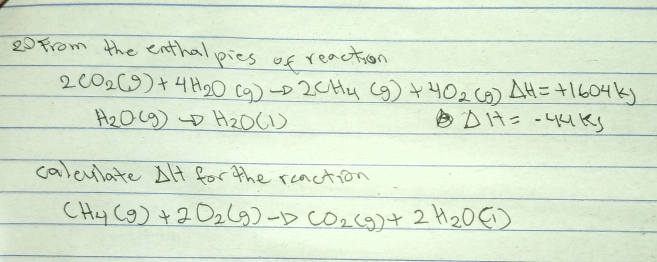 20 From the enthalpies of reaction
2CO2(g) + 4H2O (g) → 2CH4 (g) + 4O2 (g) ΔH = +1604 kJ
H2O(g) → H2O(l) ΔH = -44 kJ
calculate ΔH for the reaction
CH4 (g) + 2O2(g) → CO2(g) + 2H2O(l)